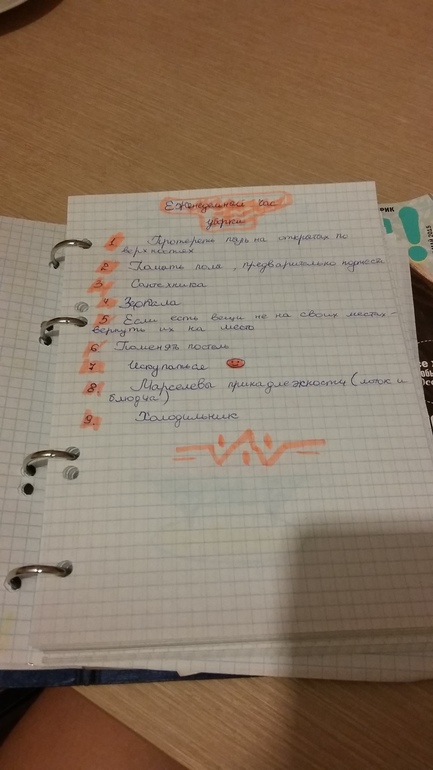 Еженедельный час
уборки
1. Протереть пыль на открытых по
верхностях
2. Помыть полы, предварительно пропылесо
3. Сантехника
4. Зеркала
5. Если есть вещи не на своих местах -
вернуть их на место
6. Поменять постель
7. Искупаться
8. Марселевы принадлежности (лоток и
блюдца)
9. Холодильник